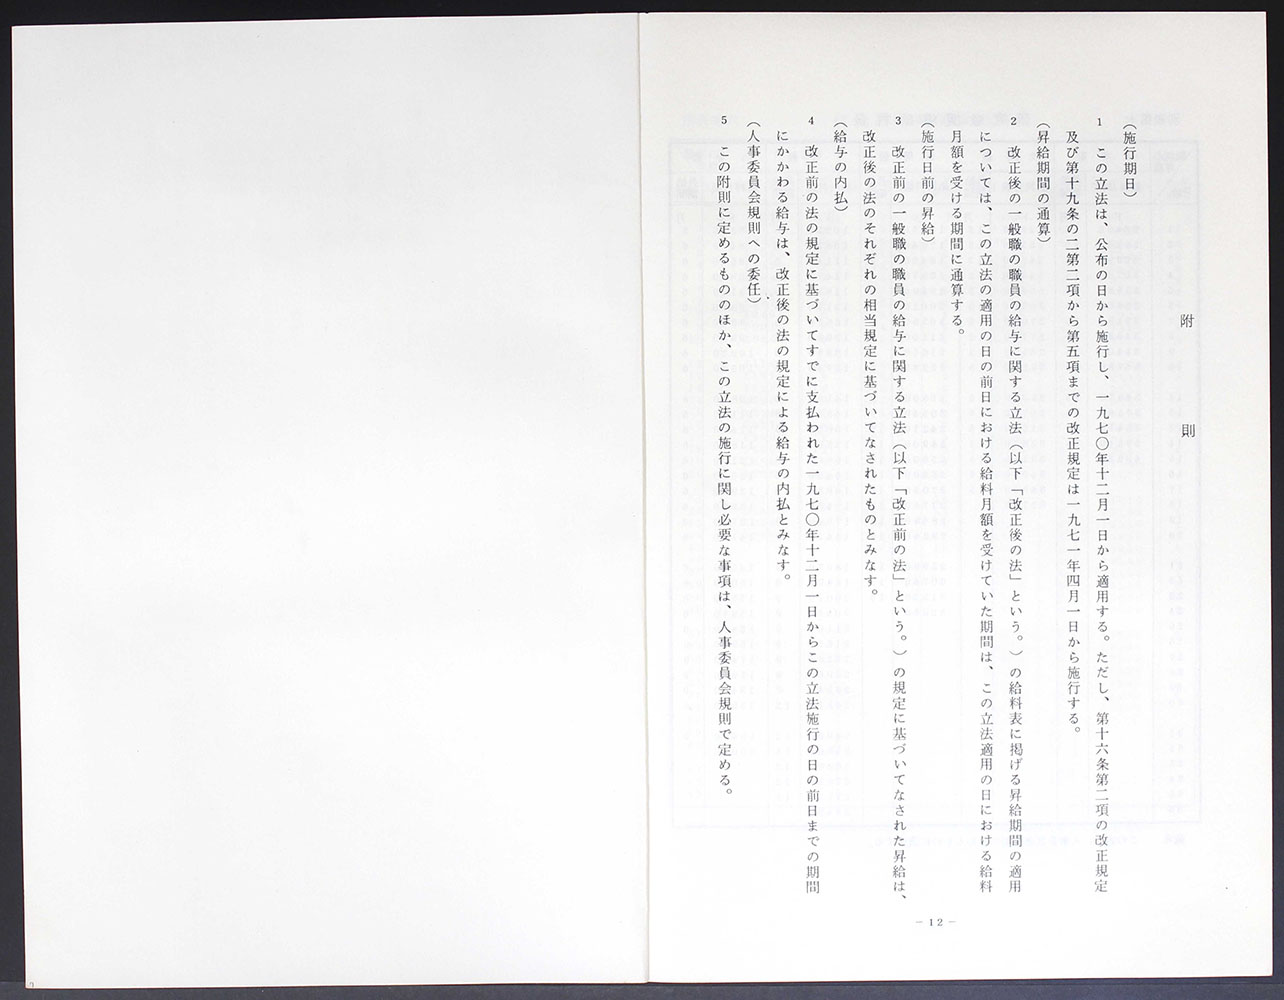 附則
（施行期日）
1　この立法は、公布の日から施行し、一九七〇年十二月一日から適用する。ただし、第十六条第二項の改正規定
及び第十九条の二第二項から第五項までの改正規定は一九七一年四月一日から施行する。
（昇給期間の通算）
2　改正後の一般職の職員の給与に関する立法（以下「改正後の法」という。）の給料表に掲げる昇給期間の適用
については、この立法の適用の日の前日における給料月額を受けていた期間は、この立法適用の日における給料
月額を受ける期間に通算する。
（施行日前の昇給）
3　改正前の一般職の職員の給与に関する立法（以下「改正前の法」という。）の規定に基づいてなされた昇給は、
改正後の法のそれぞれの相当規定に基づいてなされたものとみなす。
（給与の内払）
4　改正前の法の規定に基づいてすでに支払われた一九七〇年十二月一日からこの立法施行の日の前日までの期間
にかかわる給与は、改正後の法の規定による給与の内払とみなす。
（人事委員会規則への委任）
5　この附則に定めるもののほか、この立法の施行に関し必要な事項は、人事委員会規則で定める。
－12－